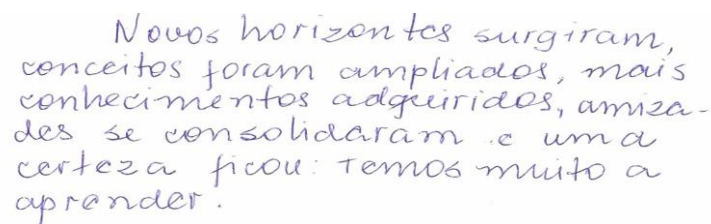 Novos horizontes surgiram,
conceitos foram ampliados, mais
conhecimentos adqueiridos, amiza-
des se consolidaram e uma
certeza ficou: Temos muito a
aprender.